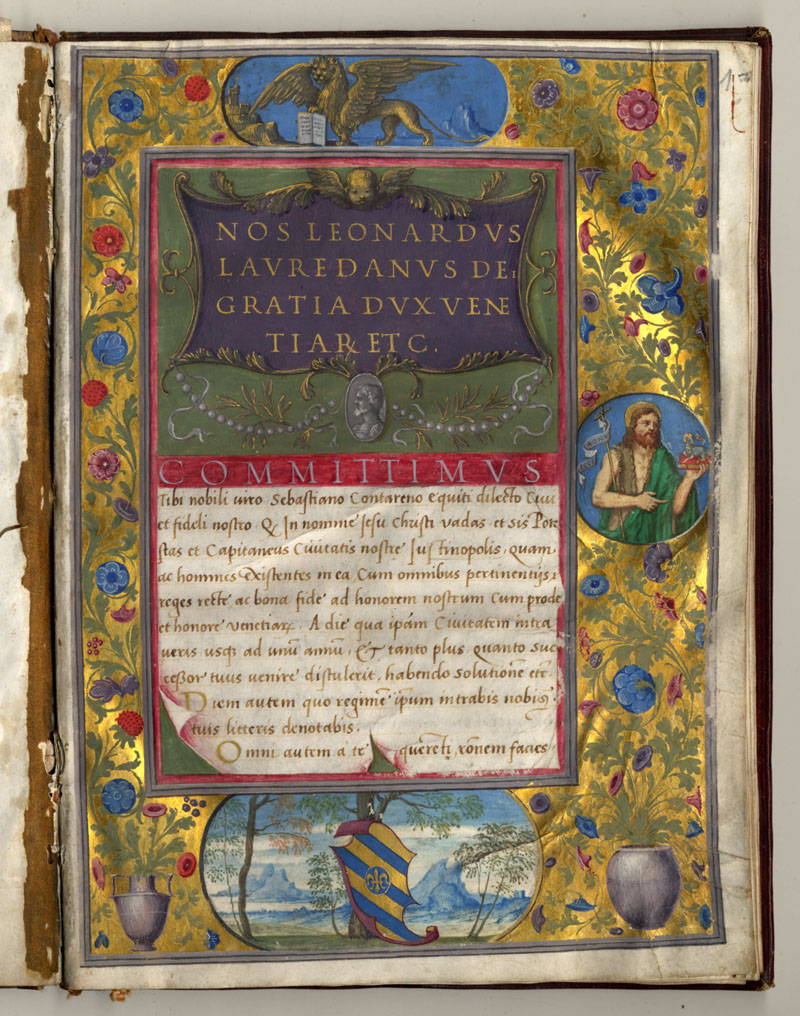 NOS LEONARDVS
LAVREDANVS DEI
GRATIA DVX VENE
TIAR ET C.
COMMITTIMVS
Tibi nobili viro Sebastiano Contareno equiti dilecto Ciui
et fideli nostro Q In nomine Jesu Christi vadas et sis Pote
stas et Capitaneus Ciuitatis nostre Justinopolis, quam
ac homines existentes in ea Cum omnibus pertinentijs
reges recte ac bona fide ad honorem nostrum Cum prode
et honore venetiar. A die qua ipam Ciuitatem intra
ueris usq ad unu annu, Et tanto plus quanto Suc
cessor tuus venire distulerit, habendo Solutione etc
Diem autem quo regimen ipum intrabis nobis
tuis litteris denotabis.
Omni autem a te querenti, ronem facies